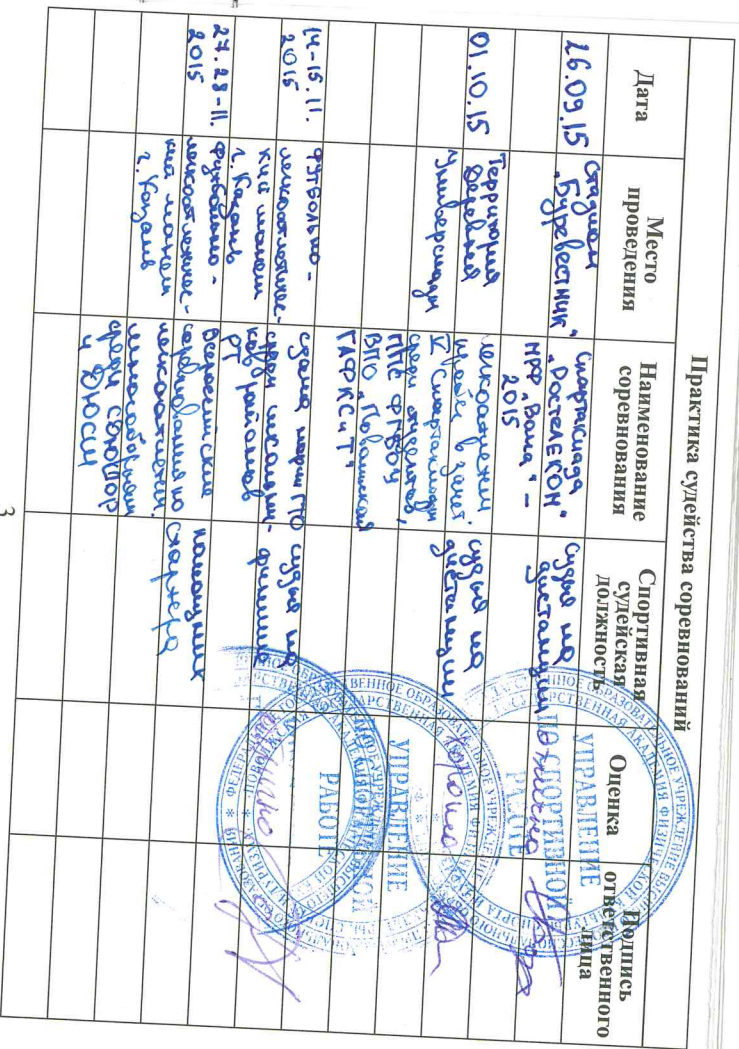 Практика судейства соревнований
Дата
Место
проведения
Наименование
соревнования
Спортивная
судейская
должность
Оценка
Подпись
ответственного
лица
26.09.15
Стадион
"Буревестник"
Спартакиада
"Ростелеком"
МРФ "Волга" –
2015
судья на
дистанции
отлично
01.10.15
Территория
Деревня
Универсиады
легкоатлетич.
кросс в зачет
X Спартакиады
среди студентов,
ППС ФГБОУ
ВПО "Поволжская
ГАФКСиТ"
судья на
дистанции
хорошо
14-15.11.
2015
Футбольно-
легкоатлетичес-
кий манеж
г. Казань
сдача норм ГТО
среди школьни-
ков районов
РТ
судья на
финише
27.28-11.
2015
Футбольно-
легкоатлетичес-
кий манеж
г. Казань
Всероссийские
соревнования по
легкоатлетич.
многоборьям
среди СДЮШОР
и ДЮСШ
помощник
стартера
УПРАВЛЕНИЕ
ПО СПОРТИВНОЙ
РАБОТЕ
УПРАВЛЕНИЕ
РАБОТЕ
3